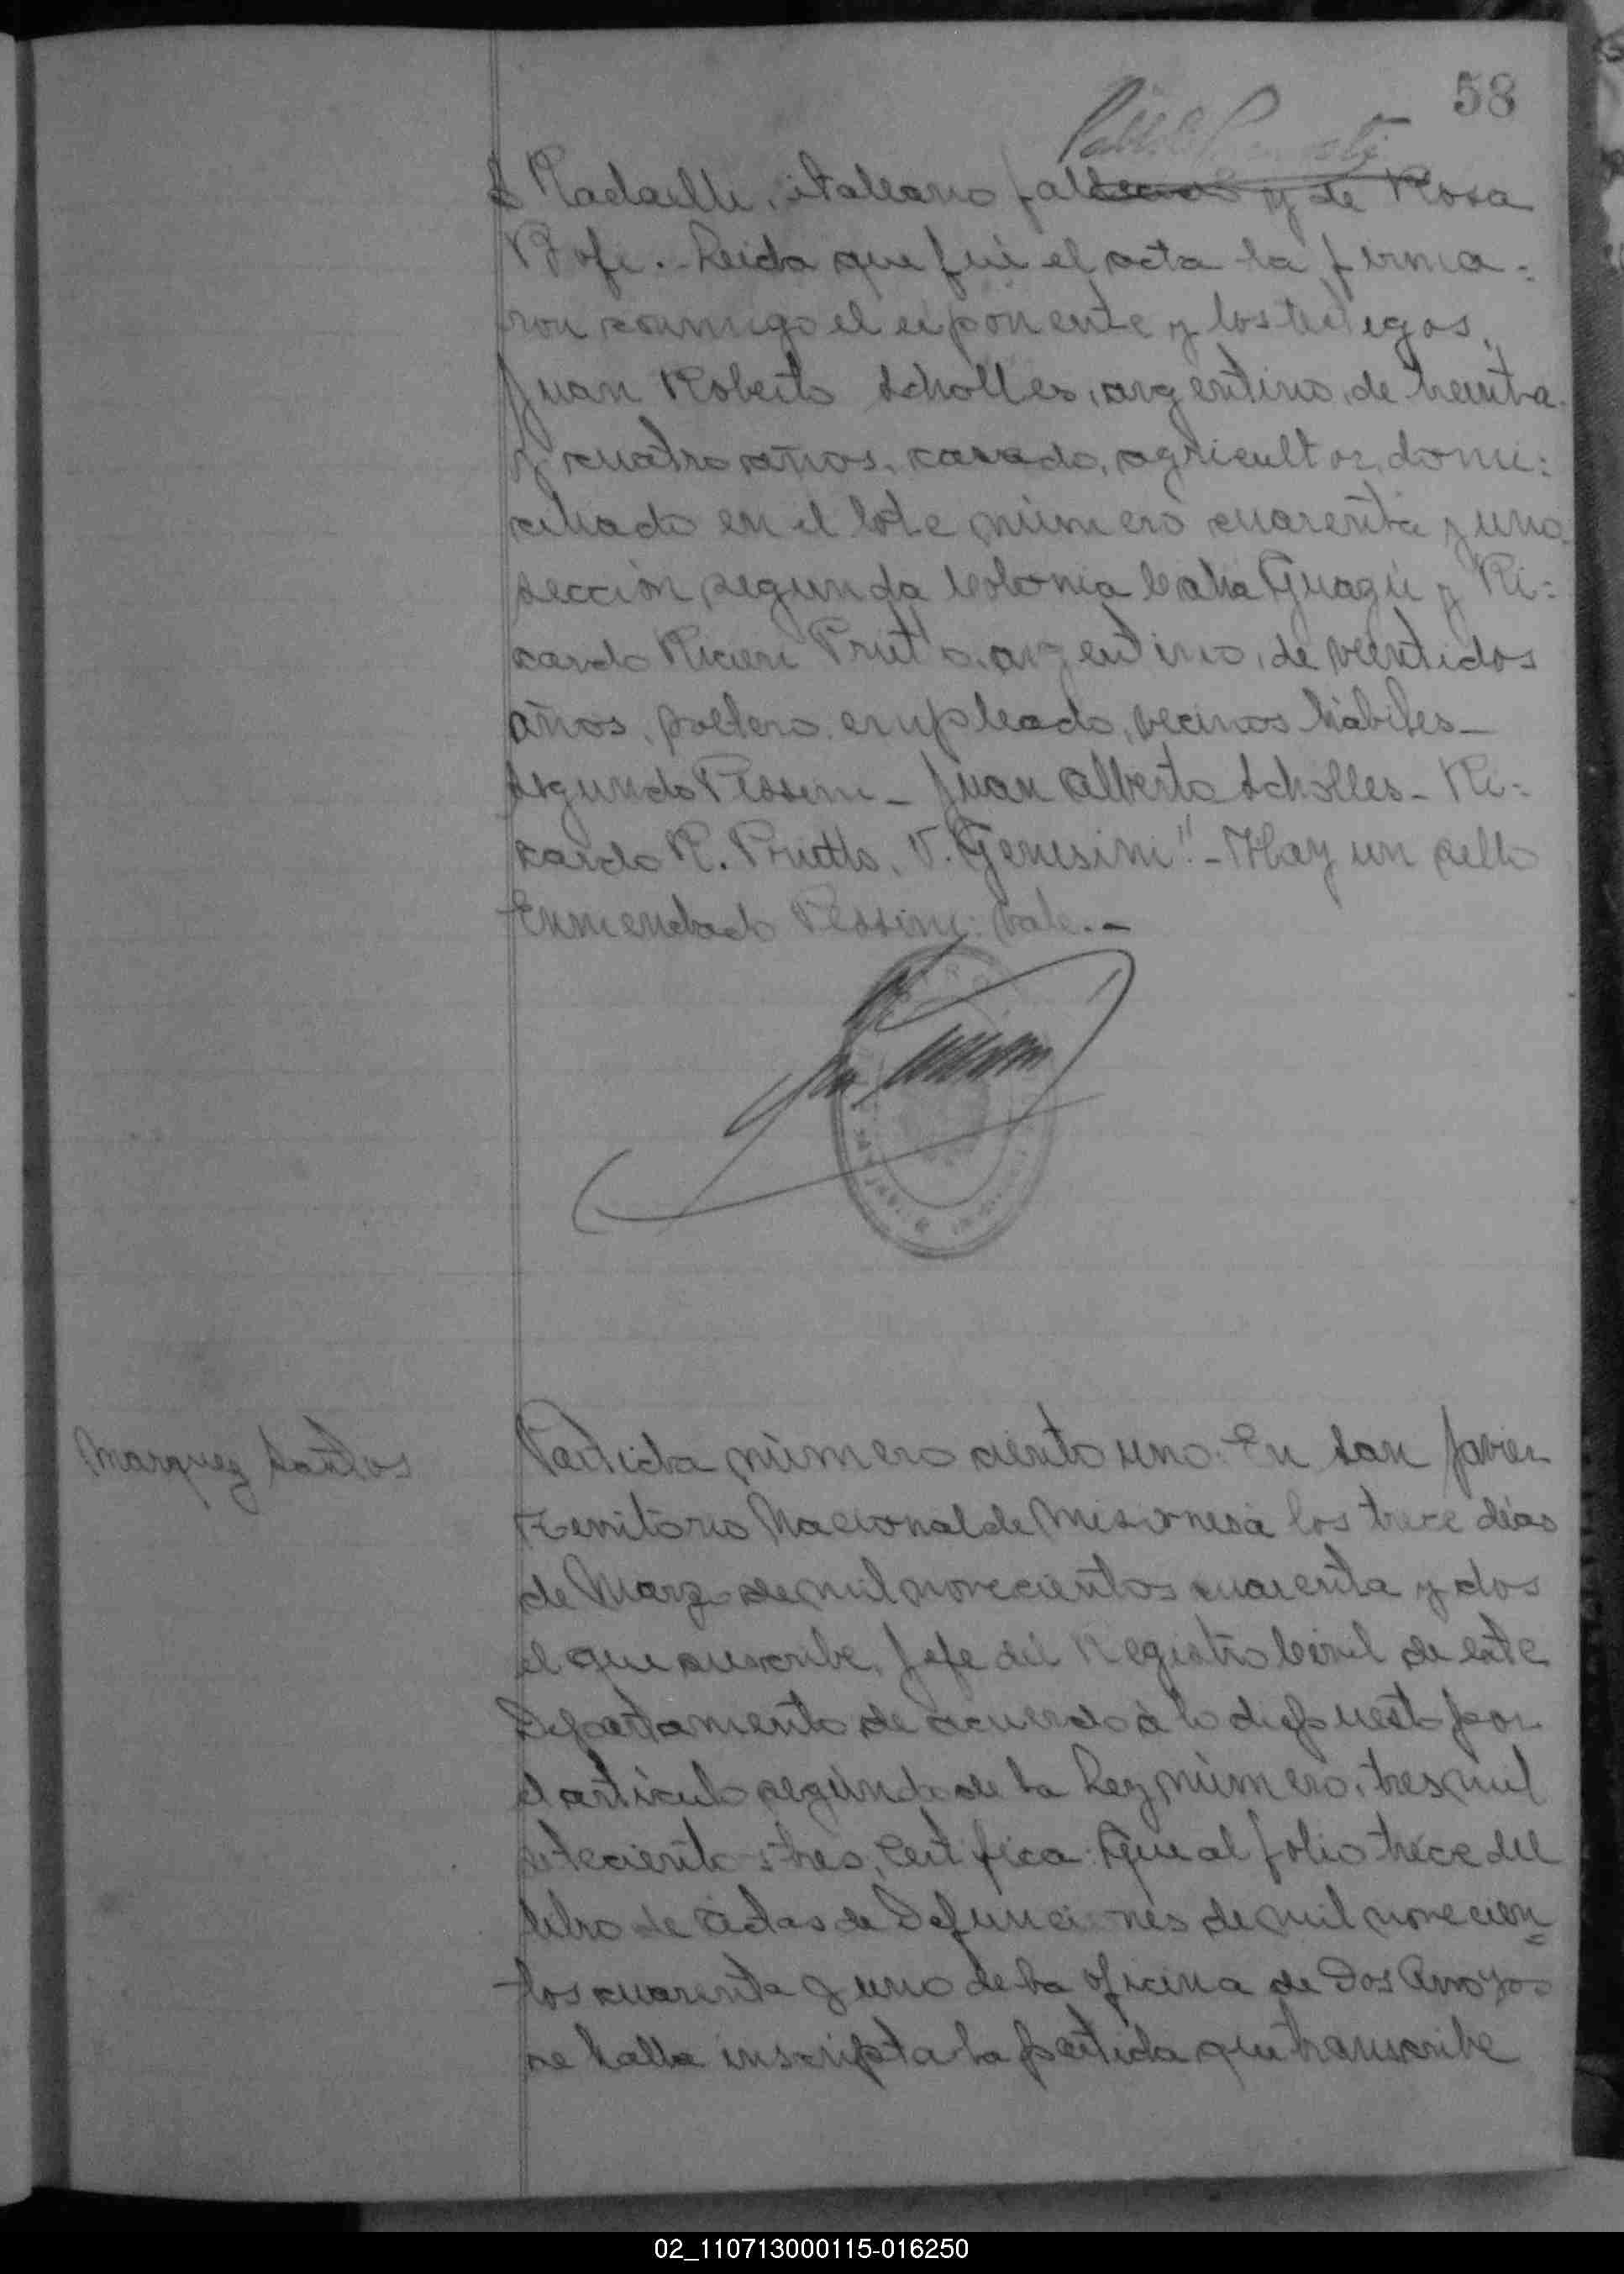 58
italiano y de Rosa
Leida que fué el acta la firma=
ron conmigo el exponente y los testigos,
Juan Roberto Scholles, argentino, de treinta
y cuatro años, casado, agricultor, domi=
ciliado en el lote número cuarenta y uno
sección segunda Colonia Caha Guazú y Ri=
cardo Prutto, argentino, de veintidos
años, soltero, empleado, vecinos hábiles_
Segundo Pessini_ Juan Alberto Scholles_ Ri=
cardo R. Prutto, V. Genesini"_Hay un sello
Enmendado Pessini: Vale._
Marquez Santos
Partida número ciento uno: En San Javier
Territorio Nacional de Misiones á los trece días
de Marzo de mil novecientos cuarenta y dos
el que suscribe, Jefe del Registro Civil de este
Departamento de acuerdo á lo dispuesto por
el artículo segundo de la Ley número, tres mil
setecientos tres, Certifica: Que al folio trece del
libro de actas de Defunciones de mil novecien=
tos cuarenta y uno de la oficina de Dos Arroyos
se halla inscripta la partida que transcribe
02_110713000115-016250